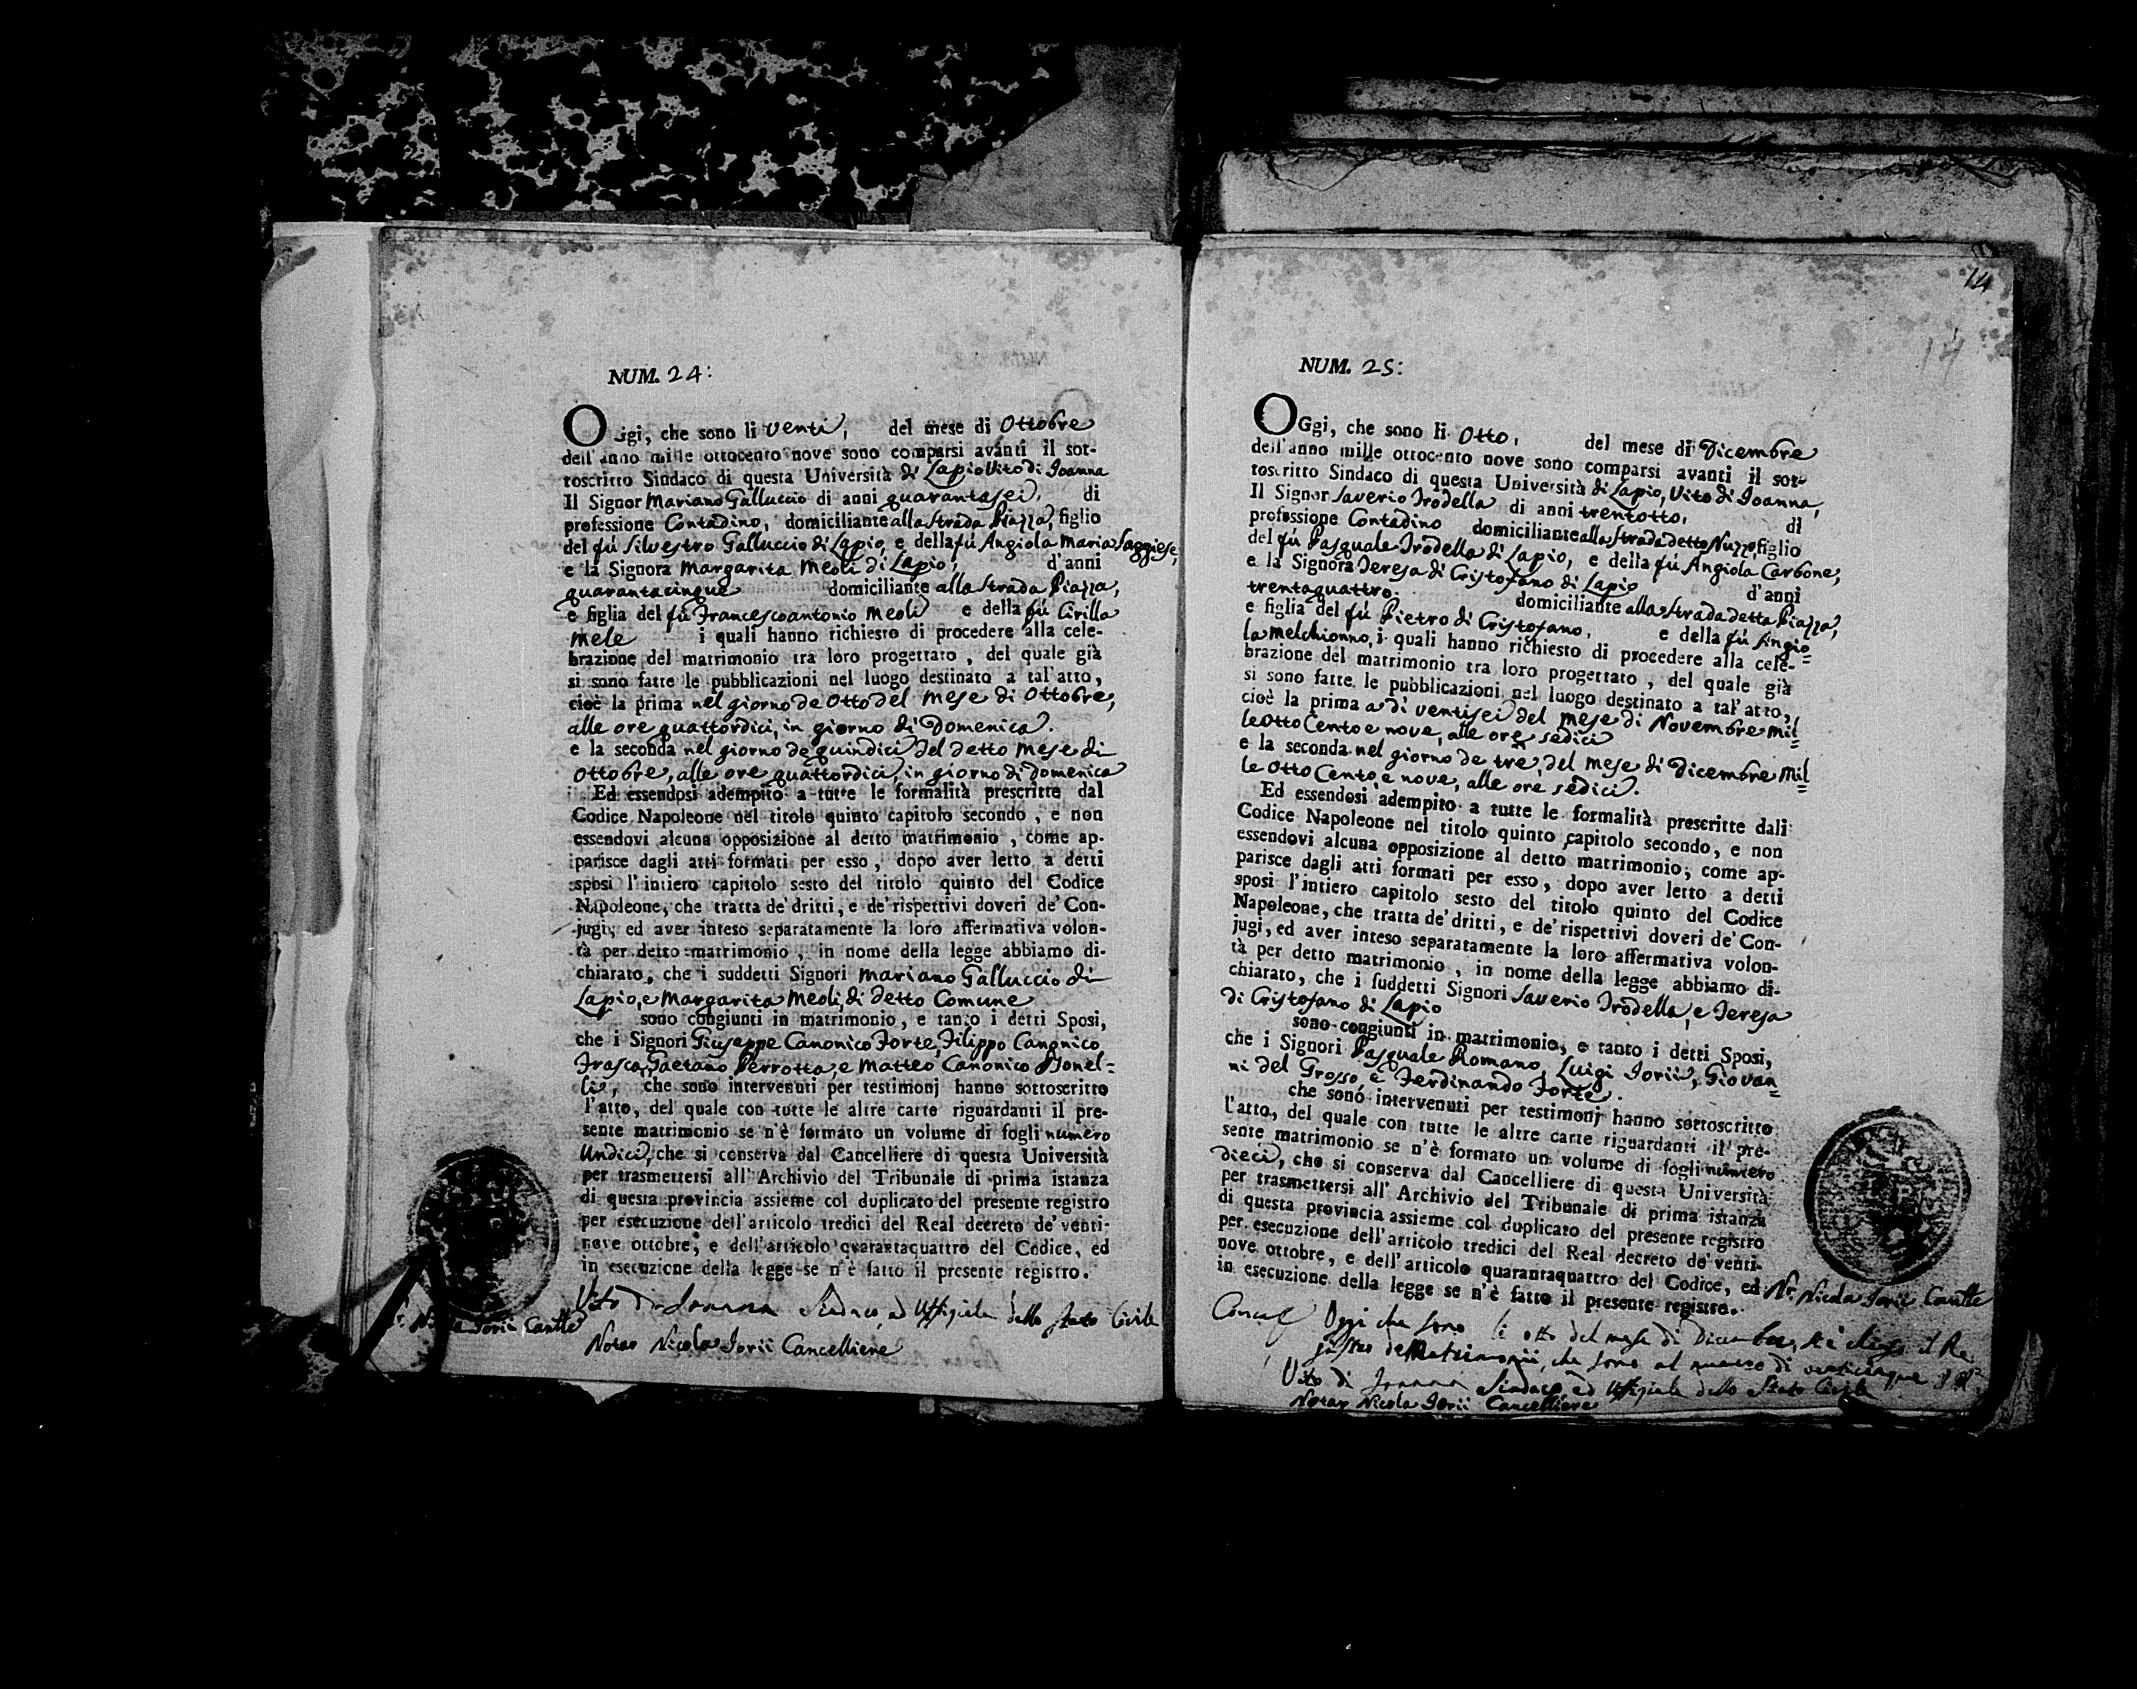 NUM. 24:
Oggi, che sono li venti, del mese di Ottobre
dell'anno mille ottocento nove sono comparsi avanti il sot-
toscritto Sindaco di questa Università di Lapio Vito di Joanna
Il Signor Mariano Galluccio di anni quarantasei, di
professione Contadino, domiciliante alla strada Piazza, figlio
del fú Silvestro Galluccio di Lapio, e della fú Angiola Maria Saggiese,
e la Signora Margarita Meoli di Lapio, d'anni
quarantacinque domiciliante alla strada Piazza,
e figlia del fú Francescoantonio Meoli e della fú Cirilla
Mele i quali hanno richiesto di procedere alla cele-
brazione del matrimonio tra loro progettato, del quale già
si sono fatte le pubblicazioni nel luogo destinato a tal'atto,
cioè la prima nel giorno de Otto del mese di Ottobre,
alle ore quattordici, in giorno di Domenica.
e la seconda nel giorno de quindici del detto mese di
Ottobre, alle ore quattordici, in giorno di Domenica
Ed essendosi adempito a tutte le formalità prescritte dal
Codice Napoleone nel titolo quinto capitolo secondo, e non
essendovi alcuna opposizione al detto matrimonio, come ap-
parisce dagli atti formati per esso, dopo aver letto a detti
sposi l'intiero capitolo sesto del titolo quinto del Codice
Napoleone, che tratta de' dritti, e de' rispettivi doveri de' Con-
jugi, ed aver inteso separatamente la loro affermativa volon-
tà per detto matrimonio, in nome della legge abbiamo di-
chiarato, che i suddetti Signori Mariano Galluccio di
Lapio, e Margarita Meoli, di detto Comune
sono congiunti in matrimonio, e tanto i detti Sposi,
che i Signori Giuseppe Canonico Forte, Filippo Canonico
Frasca, Gaetano Perrotta, e Matteo Canonico Bonel=
li, che sono intervenuti per testimonj hanno sottoscritto
l'atto, del quale con tutte le altre carte riguardanti il pre-
sente matrimonio se n'è formato un volume di fogli numero
Undici, che si conserva dal Cancelliere di questa Università
per trasmettersi all'Archivio del Tribunale di prima istanza
di questa provincia assieme col duplicato del presente registro
per esecuzione dell'articolo tredici del Real decreto de' venti-
nove ottobre, e dell'articolo quarantaquattro del Codice, ed
in esecuzione della legge se n'è fatto il presente registro.
Vito di Joanna Sindaco, ed Uffiziale dello stato Civile
Jorii Cantte
Notar Nicola Jorii Cancelliere
14
14
NUM. 25:
OGgi, che sono li Otto, del mese di Dicembre
dell'anno mille ottocento nove sono comparsi avanti il sot-
toscritto Sindaco di questa Università di Lapio, Vito di Joanna,
Il Signor Saverio Irodella di anni trentotto, di
professione Contadino domiciliante alla Strada detto Nuzzo figlio
del fú Pasquale Irodella di Lapio, e della fú Angiola Carbone,
e la Signora Teresa di Cristofano di Lapio d'anni
trentaquattro. domiciliante alla strada detta Piazza,
e figlia del fú Pietro di Cristofano, e della fú Angio=
la Melchionno, i quali hanno richiesto di procedere alla cele-
brazione del matrimonio tra loro progettato, del quale già
si sono fatte le pubblicazioni nel luogo destinato a tal'atto,
cioè la prima a dì ventisei del mese di Novembre mil=
le Otto Cento e nove, alle ore sedici
e la seconda nel giorno de tre, del mese di Dicembre mil=
le Otto Cento e nove, alle ore sedici.
Ed essendosi adempito a tutte le formalità prescritte dal
Codice Napoleone nel titolo quinto capitolo secondo, e non
essendovi alcuna opposizione al detto matrimonio, come ap-
parisce dagli atti formati per esso, dopo aver letto a detti
sposi l'intiero capitolo sesto del titolo quinto del Codice
Napoleone, che tratta de' dritti, e de' rispettivi doveri de' Con-
jugi, ed aver inteso separatamente la loro affermativa volon-
tà per detto matrimonio, in nome della legge abbiamo di-
chiarato, che i suddetti Signori Saverio Irodella, e Teresa
di Cristofano di Lapio
sono congiunti in matrimonio, e tanto i detti Sposi,
che i Signori Pasquale Romano, Luigi Jorii, Giovan=
ni del Grosso, e Ferdinando Forte.
che sono intervenuti per testimonj hanno sottoscritto
l'atto, del quale con tutte le altre carte riguardanti il pre-
sente matrimonio se n'è formato un volume di fogli numero
dieci, che si conserva dal Cancelliere di questa Università
per trasmettersi all'Archivio del Tribunale di prima istanza
di questa provincia assieme col duplicato del presente registro
per esecuzione dell'articolo tredici del Real decreto de' venti-
nove ottobre, e dell'articolo quarantaquattro del Codice, ed
in esecuzione della legge se n'è fatto il presente registro.
Nr Nicola Jorii Cantte
Oggi che sono li otto del mese di Dicembre, si è chiuso il Re
gistro de Matrimonii, che sono al numero di venticinque
Vito di Joanna Sindaco, ed Uffiziale dello Stato Civile
Notar Nicola Jorii Cancelliere